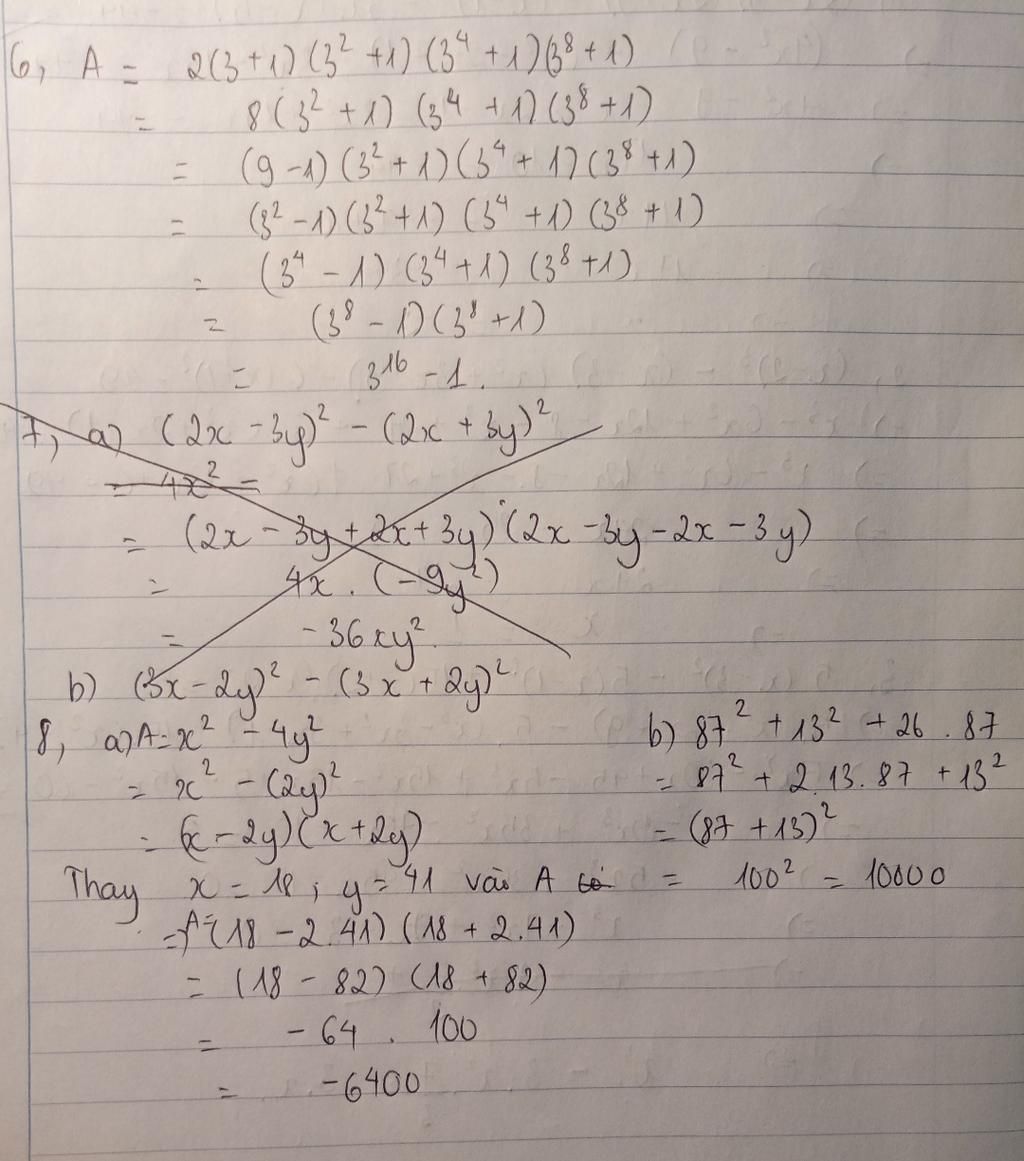 6, A = 2(3+1)(3² +1)(3⁴ +1)(3⁸+1)
= 8(3² +1)(3⁴ +1)(3⁸+1)
= (9-1)(3²+1)(3⁴+1)(3⁸+1)
= (3²-1)(3²+1)(3⁴+1)(3⁸+1)
= (3⁴-1)(3⁴+1)(3⁸+1)
= (3⁸-1)(3⁸+1)
= 3¹⁶-1.
7, a) (2x-3y)² - (2x+3y)²
= 4x² -
= (2x-3y+2x+3y)(2x-3y-2x-3y)
= 4x.(-9y²)
= -36xy².
b) (3x-2y)² - (3x+2y)²
8, a) A = x² - 4y²
= x² - (2y)²
= (x-2y)(x+2y)
Thay x = 18 ; y = 41 vào A có
=> A = (18 - 2.41)(18 + 2.41)
= (18 - 82)(18 + 82)
= -64 . 100
= -6400
b) 87² + 13² + 26 . 87
= 87² + 2.13.87 + 13²
= (87 + 13)²
= 100² = 10000